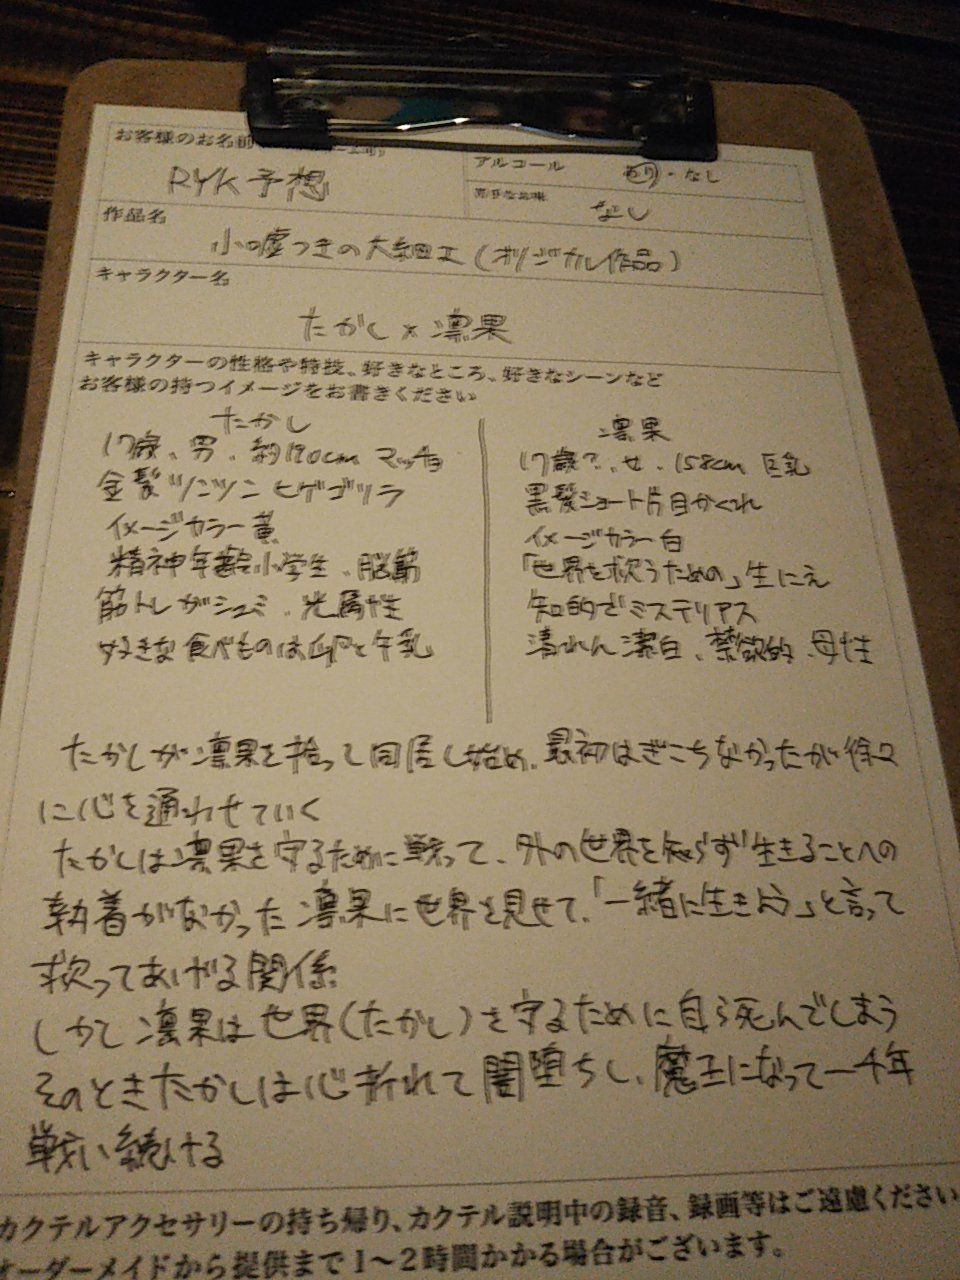 お客様のお名前
RYK予想
アルコール
あり・なし
なし
作品名
小嘘つきの大細工(オリジナル作品)
キャラクター名
たかし×凛果
キャラクターの性格や特技、好きなところ、好きなシーンなど
お客様の持つイメージをお書きください
たかし
17歳、男、約190cm マッチョ
金髪ツンツン ヒゲゴリラ
イメージカラー黄
精神年齢小学生、脳筋
筋トレがシュミ、光属性
好きな食べものは卵と牛乳
凛果
17歳?、女、158cm 巨乳
黒髪ショート片目かくれ
イメージカラー白
「世界を救うための」生にえ
知的でミステリアス
清れん潔白、禁欲的、母性
たかしが凛果を拾って同居し始め、最初はぎこちなかったが徐々
に心を通わせていく
たかしは凛果を守るために戦って、外の世界を知らず生きることへの
執着がなかった凛果に世界を見せて、「一緒に生きよう」と言って
救ってあげる関係
しかし凛果は世界(たかし)を守るために自ら死んでしまう
そのときたかしは心折れて闇堕ちし、魔王になって一千年
戦い続ける
カクテルアクセサリーの持ち帰り、カクテル説明中の録音、録画等はご遠慮ください
オーダーメイドから提供まで1〜2時間かかる場合がございます。